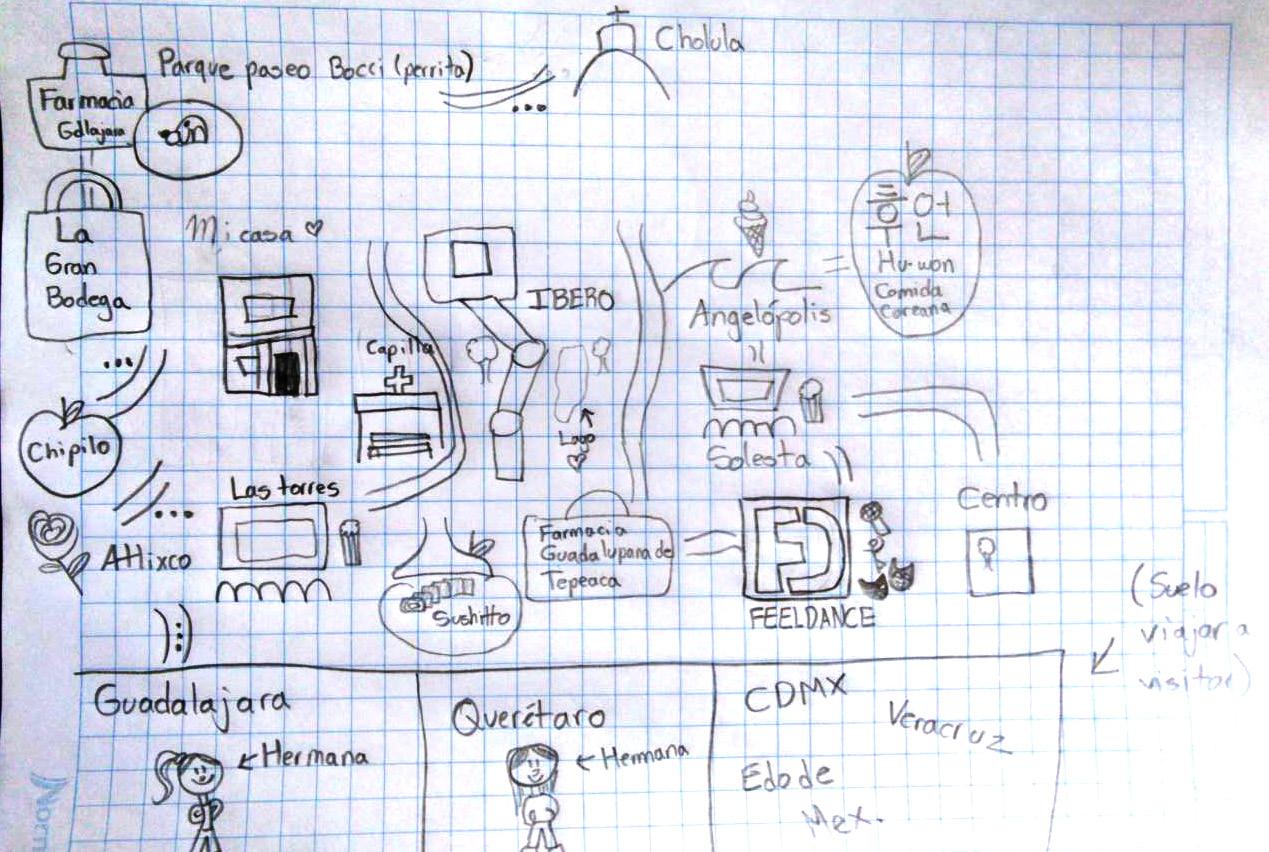 Cholula
Parque paseo Bocci (perrita)
Farmacia
Gdlajara
La
Gran
Bodega
Mi casa
IBERO
Capilla
Lago
Angelópolis
후원
Hu-won
Comida
Coreana
Solesta
Chipilo
Las torres
Atlixco
Sushitto
Farmacia
Guadalupana de
Tepeaca
FD
FEELDANCE
Centro
(Suelo
viajar a
visitar)
Guadalajara
Hermana
Querétaro
Hermana
CDMX
Veracruz
Edo de
Mex.
Norm